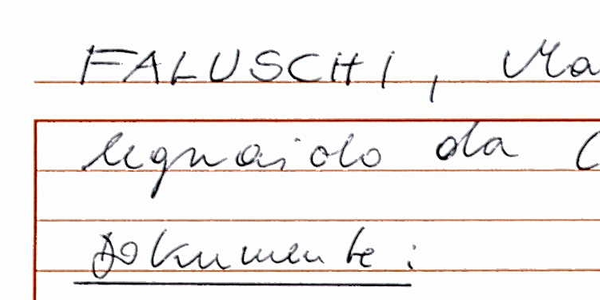 FALUSCHI, Ma
legnaiolo da C
Dokumente: